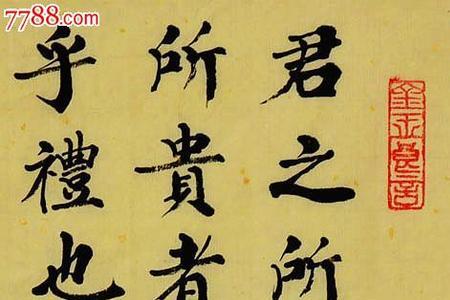 7788.com
君之所
所貴者
乎禮也